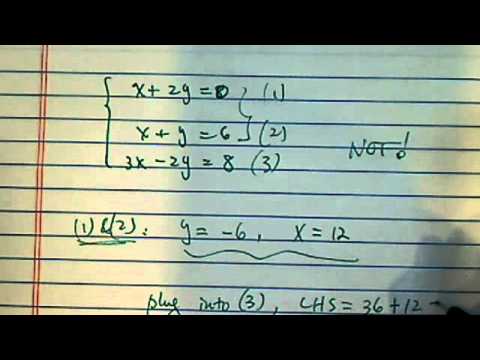 x + 2y = 0 (1)
x + y = 6 (2)
NOT!
3x - 2y = 8 (3)
(1)&(2): y = -6, x = 12
plug into (3), LHS = 36 + 12